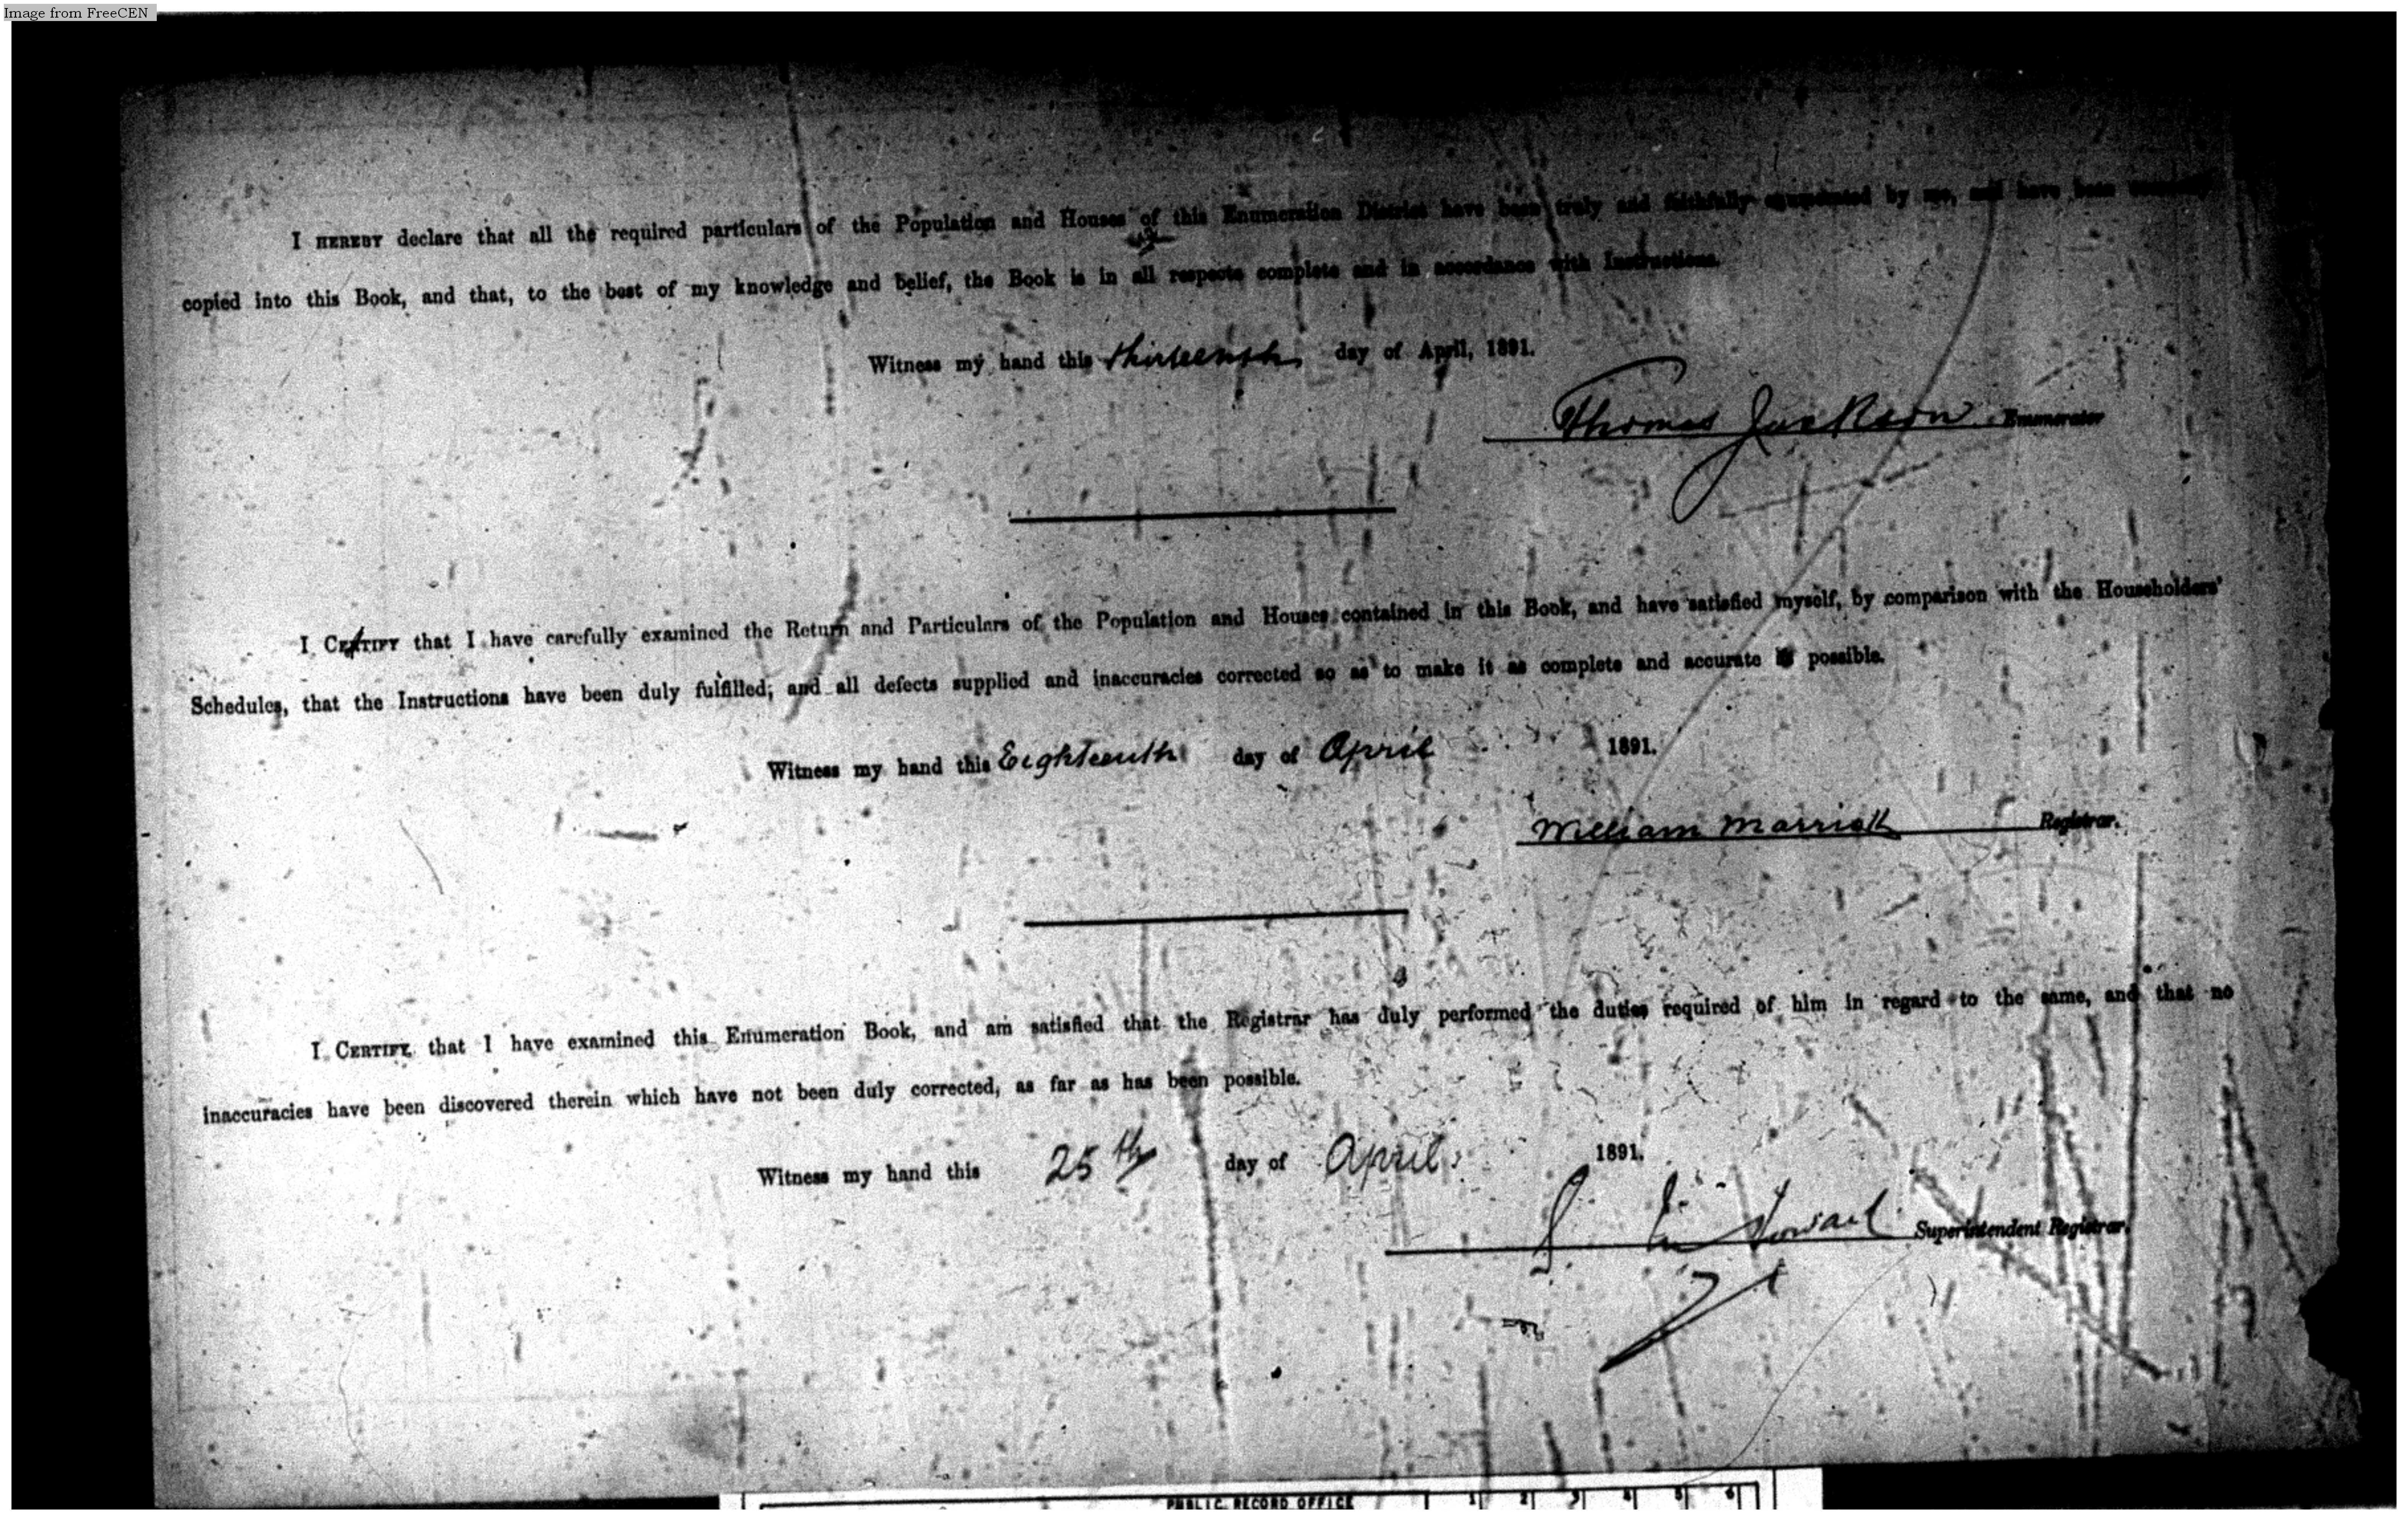 Image from FreeCEN
I HEREBY declare that all the required particulars of the Population and Houses of this Enumeration District have been truly and faithfully enumerated by me, and have been
copied into this Book, and that, to the best of my knowledge and belief, the Book is in all respects complete and in accordance with Instructions.
Witness my hand this thirteenth day of April, 1891.
Thomas Jackson Enumerator
I CERTIFY that I have carefully examined the Return and Particulars of the Population and Houses contained in this Book, and have satisfied myself, by comparison with the Householders'
Schedules, that the Instructions have been duly fulfilled; and all defects supplied and inaccuracies corrected so as to make it as complete and accurate as possible.
Witness my hand this Eighteenth day of April 1891.
William Marrick Registrar.
I CERTIFY that I have examined this Enumeration Book, and am satisfied that the Registrar has duly performed the duties required of him in regard to the same, and that no
inaccuracies have been discovered therein which have not been duly corrected, as far as has been possible.
Witness my hand this 25th day of April 1891.
Superintendent Registrar.
PUBLIC RECORD OFFICE 1 2 3 4 5 6